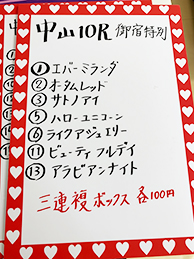 中山10R 御宿特別
①エバーミランダ
②オータムレッド
③サトノアイ
⑤ハローユニコーン
⑥ライクアジュエリー
⑪ビューティフルデイ
⑬アラビアンナイト
三連複ボックス 各100円